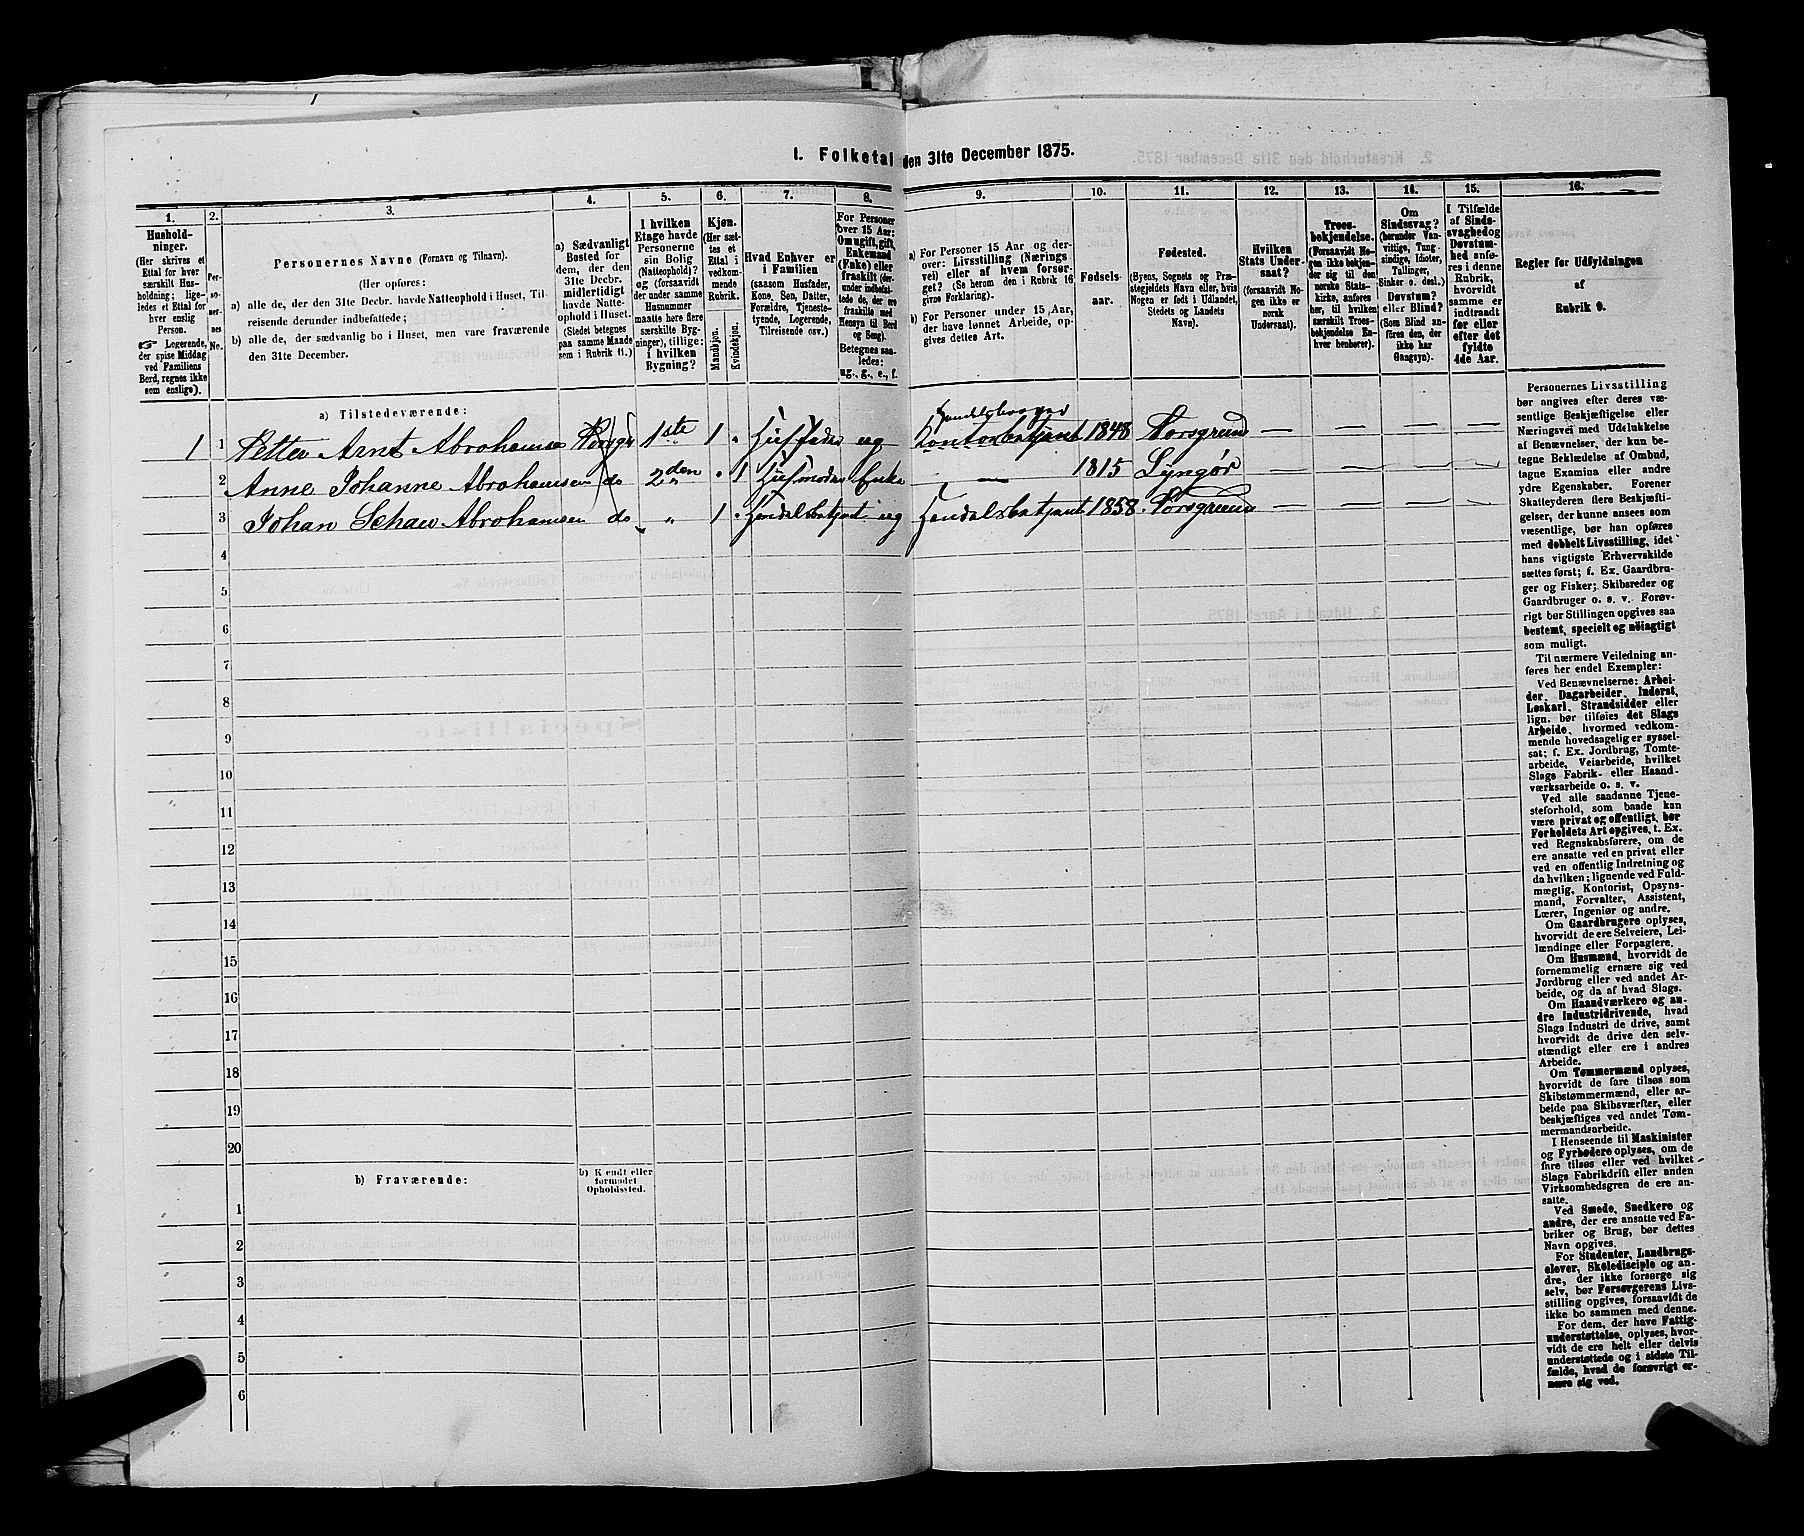 1. Folketal den 31te December 1875.
1.
Hushold-
ninger.
(Her skrives et
Ettal for hver
særskilt Hus-
holdning; lige-
ledes et Ettal for
hver enslig
Person.
☞ Logerende,
der spise Middag
ved Familiens
Bord, regnes ikke
som enslige).
2.
Per-
so-
ner-
nes
No.
3.
Personernes Navne (Fornavn og Tilnavn).
(Her opføres:
a) alle de, der den 31te Decbr. havde Natteophold i Huset, Til-
reisende derunder indbefattede;
b) alle de, der sædvanlig bo i Huset, men vare fraværende
den 31te December.
4.
a) Sædvanligt
Bosted for
dem, der den
31te Decbr.
midlertidigt
havde Natte-
ophold i Huset.
(Stedet betegnes
paa samme Maade
som i Rubrik 11.)
5.
I hvilken
Etage havde
Personerne
sin Bolig
(Natteophold)?
og (forsaavidt
der under samme
Husnummer
maatte flere
særskilte Byg-
ninger), tillige:
i hvilken
Bygning?
6.
Kjøn.
(Her sæt-
tes et
Ettal i
vedkom-
mende
Rubrik.
Mandkjøn.
Kvindekjøn.
7.
Hvad Enhver er
i Familien
(saasom Husfader,
Kone, Søn, Datter,
Forældre, Tjeneste-
tyende, Logerende,
Tilreisende osv.)
8.
For Personer
over 15 Aar:
Om ugift, gift,
Enkemand
(Enke) eller
fraskilt (der-
under indbefat-
tede de, der ere
fraskilte med
Hensyn til Bord
og Seng).
Betegnes saa-
ledes:
ug., g., e., f.
9.
a) For Personer 15 Aar og der-
over: Livsstilling (Nærings
vei) eller af hvem forsør-
get? (Se herom den i Rubrik 16
givne Forklaring).
b) For Personer under 15 Aar,
der have lønnet Arbeide, op-
gives dettes Art.
10.
Fødsels-
aar.
11.
Fødested.
(Byens, Sognets og Præ-
stegjeldets Navn eller, hvis
Nogen er født i Udlandet,
Stedets og Landets
Navn).
12.
Hvilken
Stats Under-
saat?
(forsaavidt No-
gen ikke er
norsk
Undersaat).
13.
Troes-
bekjendelse.
(Forsaavidt No-
gen ikke bekjen-
der sig til den
norske Stats-
kirke, anføres
her, til hvilken
særskilt Troes-
bekjendelse En-
hver henhører).
14.
Om
Sindssvag?
(herunder Van-
vittige, Tung-
sindige, Idioter,
Tullinger,
Sinker o. desl.)
Døvstum?
eller Blind?
(Som Blind an-
føres den, der
ikke har
Gangsyn).
15.
I Tilfælde
af Sinds-
svaghed og
Døvstum-
hed anfø-
res i denne
Rubrik,
hvorvidt
samme er
indtraadt
før eller
efter det
fyldte
4de Aar.
16.
Regler for Udfyldningen
af
Rubrik 9.
a) Tilstedeværende:
Handelsborger
1 1 Petter Arnt Abrahamsen Porsgr 1ste 1 " Husfader ug Kontorbetjent 1848 Porsgrund — — — —
2 Anne Johanne Abrahamsen do 2den " 1 Husmoder Enke — 1815 Lyngør — — — —
3 Johan Schau Abrahamsen do " 1 " Handelsbetjent ug Handelsbetjent 1858 Porsgrund — — — —
4
5
6
7
8
9
10
11
12
13
14
15
16
17
18
19
20
b) Fraværende:
b) Kjendt eller
formodet
Opholdssted.
1
2
3
4
5
6
Personernes Livsstilling
bør angives efter deres væ-
sentlige Beskjæftigelse eller
Næringsvei med Udelukkelse
af Benævnelser, der kun be-
tegne Beklædelse af Ombud,
tagne Examina eller andre
ydre Egenskaber. Forener
Skatteyderen flere Beskjæfti-
gelser, der kunne ansees som
væsentlige, bør han opføres
med dobbelt Livsstilling, idet
hans vigtigste Erhvervskilde
sættes først; f. Ex. Gaardbru-
ger og Fisker; Skibsreder og
Gaardbruger o. s. v. Forøv-
rigt bør Stillingen opgives saa
bestemt, specielt og nøiagtigt
som muligt.
Til nærmere Veiledning an-
føres her endel Exempler:
Ved Benævnelserne: Arbei-
der, Dagarbeider, Inderst,
Løskarl, Strandsidder eller
lign. bør tilføies det Slags
Arbeide, hvormed vedkom-
mende hovedsagelig er syssel-
sat; f. Ex. Jordbrug, Tomte-
arbeide, Veiarbeide, hvilket
Slags Fabrik- eller Haand-
værksarbeide o. s. v.
Ved alle saadanne Tjene-
steforhold, som baade kan
være privat og offentligt, bør
Forholdets Art opgives, t. Ex.
ved Regnskabsførere, om de
ere ansatte ved en privat eller
ved en offentlig Indretning og
da hvilken; lignende ved Fuld-
mægtig, Kontorist, Opsyns-
mand, Forvalter, Assistent,
Lærer, Ingeniør og andre.
Om Gaardbrugere oplyses,
hvorvidt de ere Selveiere, Lei-
lændinge eller Forpagtere.
Om Husmænd, hvorvidt de
fornemmelig ernære sig ved
Jordbrug eller ved andet Ar-
beide, og da af hvad Slags.
Om Haandværkere og an-
dre Industridrivende, hvad
Slags Industri de drive, samt
hvorvidt de drive den selv-
stændigt eller ere i andres
Arbeide.
Om Tømmermænd oplyses,
hvorvidt de fare tilsøs som
Skibstømmermænd, eller ar-
beide paa Skibsværfter, eller
beskjæftiges ved andet Tøm-
mermandsarbeide.
I Henseende til Maskinister
og Fyrbødere oplyses, om de
fare tilsøs eller ved hvilket
Slags Fabrikdrift eller anden
Virksomhedsgren de ere an-
satte.
Ved Smede, Snedkere og
andre, der ere ansatte ved Fa-
briker og Brug, bør dettes
Navn opgives.
For Studenter, Landbrugs-
elever, Skoledisciple og an-
dre, der ikke forsørge sig
selv, bør Forsørgerens Livs-
stilling opgives, forsaavidt de
ikke bo sammen med denne.
For dem, der have Fattig-
understøttelse, oplyses, hvor-
vidt de ere helt eller delvis
understøttede og i sidste Til-
fælde, hvad de forøvrigt er-
nære sig ved.